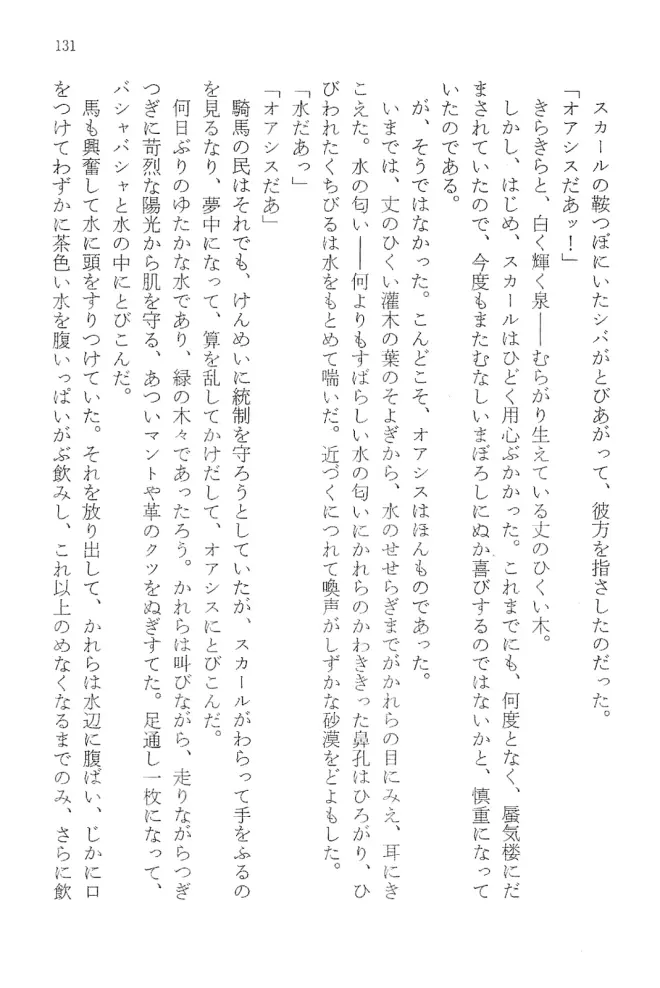 131
スカールの鞍つぼにいたシバがとびあがって、彼方を指さしたのだった。
「オアシスだあッ！」
きらきらと、白く輝く泉――むらがり生えている丈のひくい木。
しかし、はじめ、スカールはひどく用心ぶかかった。これまでにも、何度となく、蜃気楼にだ
まされていたので、今度もまたむなしいまぼろしにぬか喜びするのではないかと、慎重になって
いたのである。
が、そうではなかった。こんどこそ、オアシスはほんものであった。
いまでは、丈のひくい灌木の葉のそよぎから、水のせせらぎまでがかれらの目にみえ、耳にき
こえた。水の匂い――何よりもすばらしい水の匂いにかれらのかわききった鼻孔はひろがり、ひ
びわれたくちびるは水をもとめて喘いだ。近づくにつれて喚声がしずかな砂漠をどよもした。
「水だあっ」
「オアシスだあ」
騎馬の民はそれでも、けんめいに統制を守ろうとしていたが、スカールがわらって手をふるの
を見るなり、夢中になって、算を乱してかけだして、オアシスにとびこんだ。
何日ぶりのゆたかな水であり、緑の木々であったろう。かれらは叫びながら、走りながらつぎ
つぎに苛烈な陽光から肌を守る、あついマントや革のクツをぬぎすてた。足通し一枚になって、
バシャバシャと水の中にとびこんだ。
馬も興奮して水に頭をすりつけていた。それを放り出して、かれらは水辺に腹ばい、じかに口
をつけてわずかに茶色い水を腹いっぱいがぶ飲みし、これ以上のめなくなるまでのみ、さらに飲